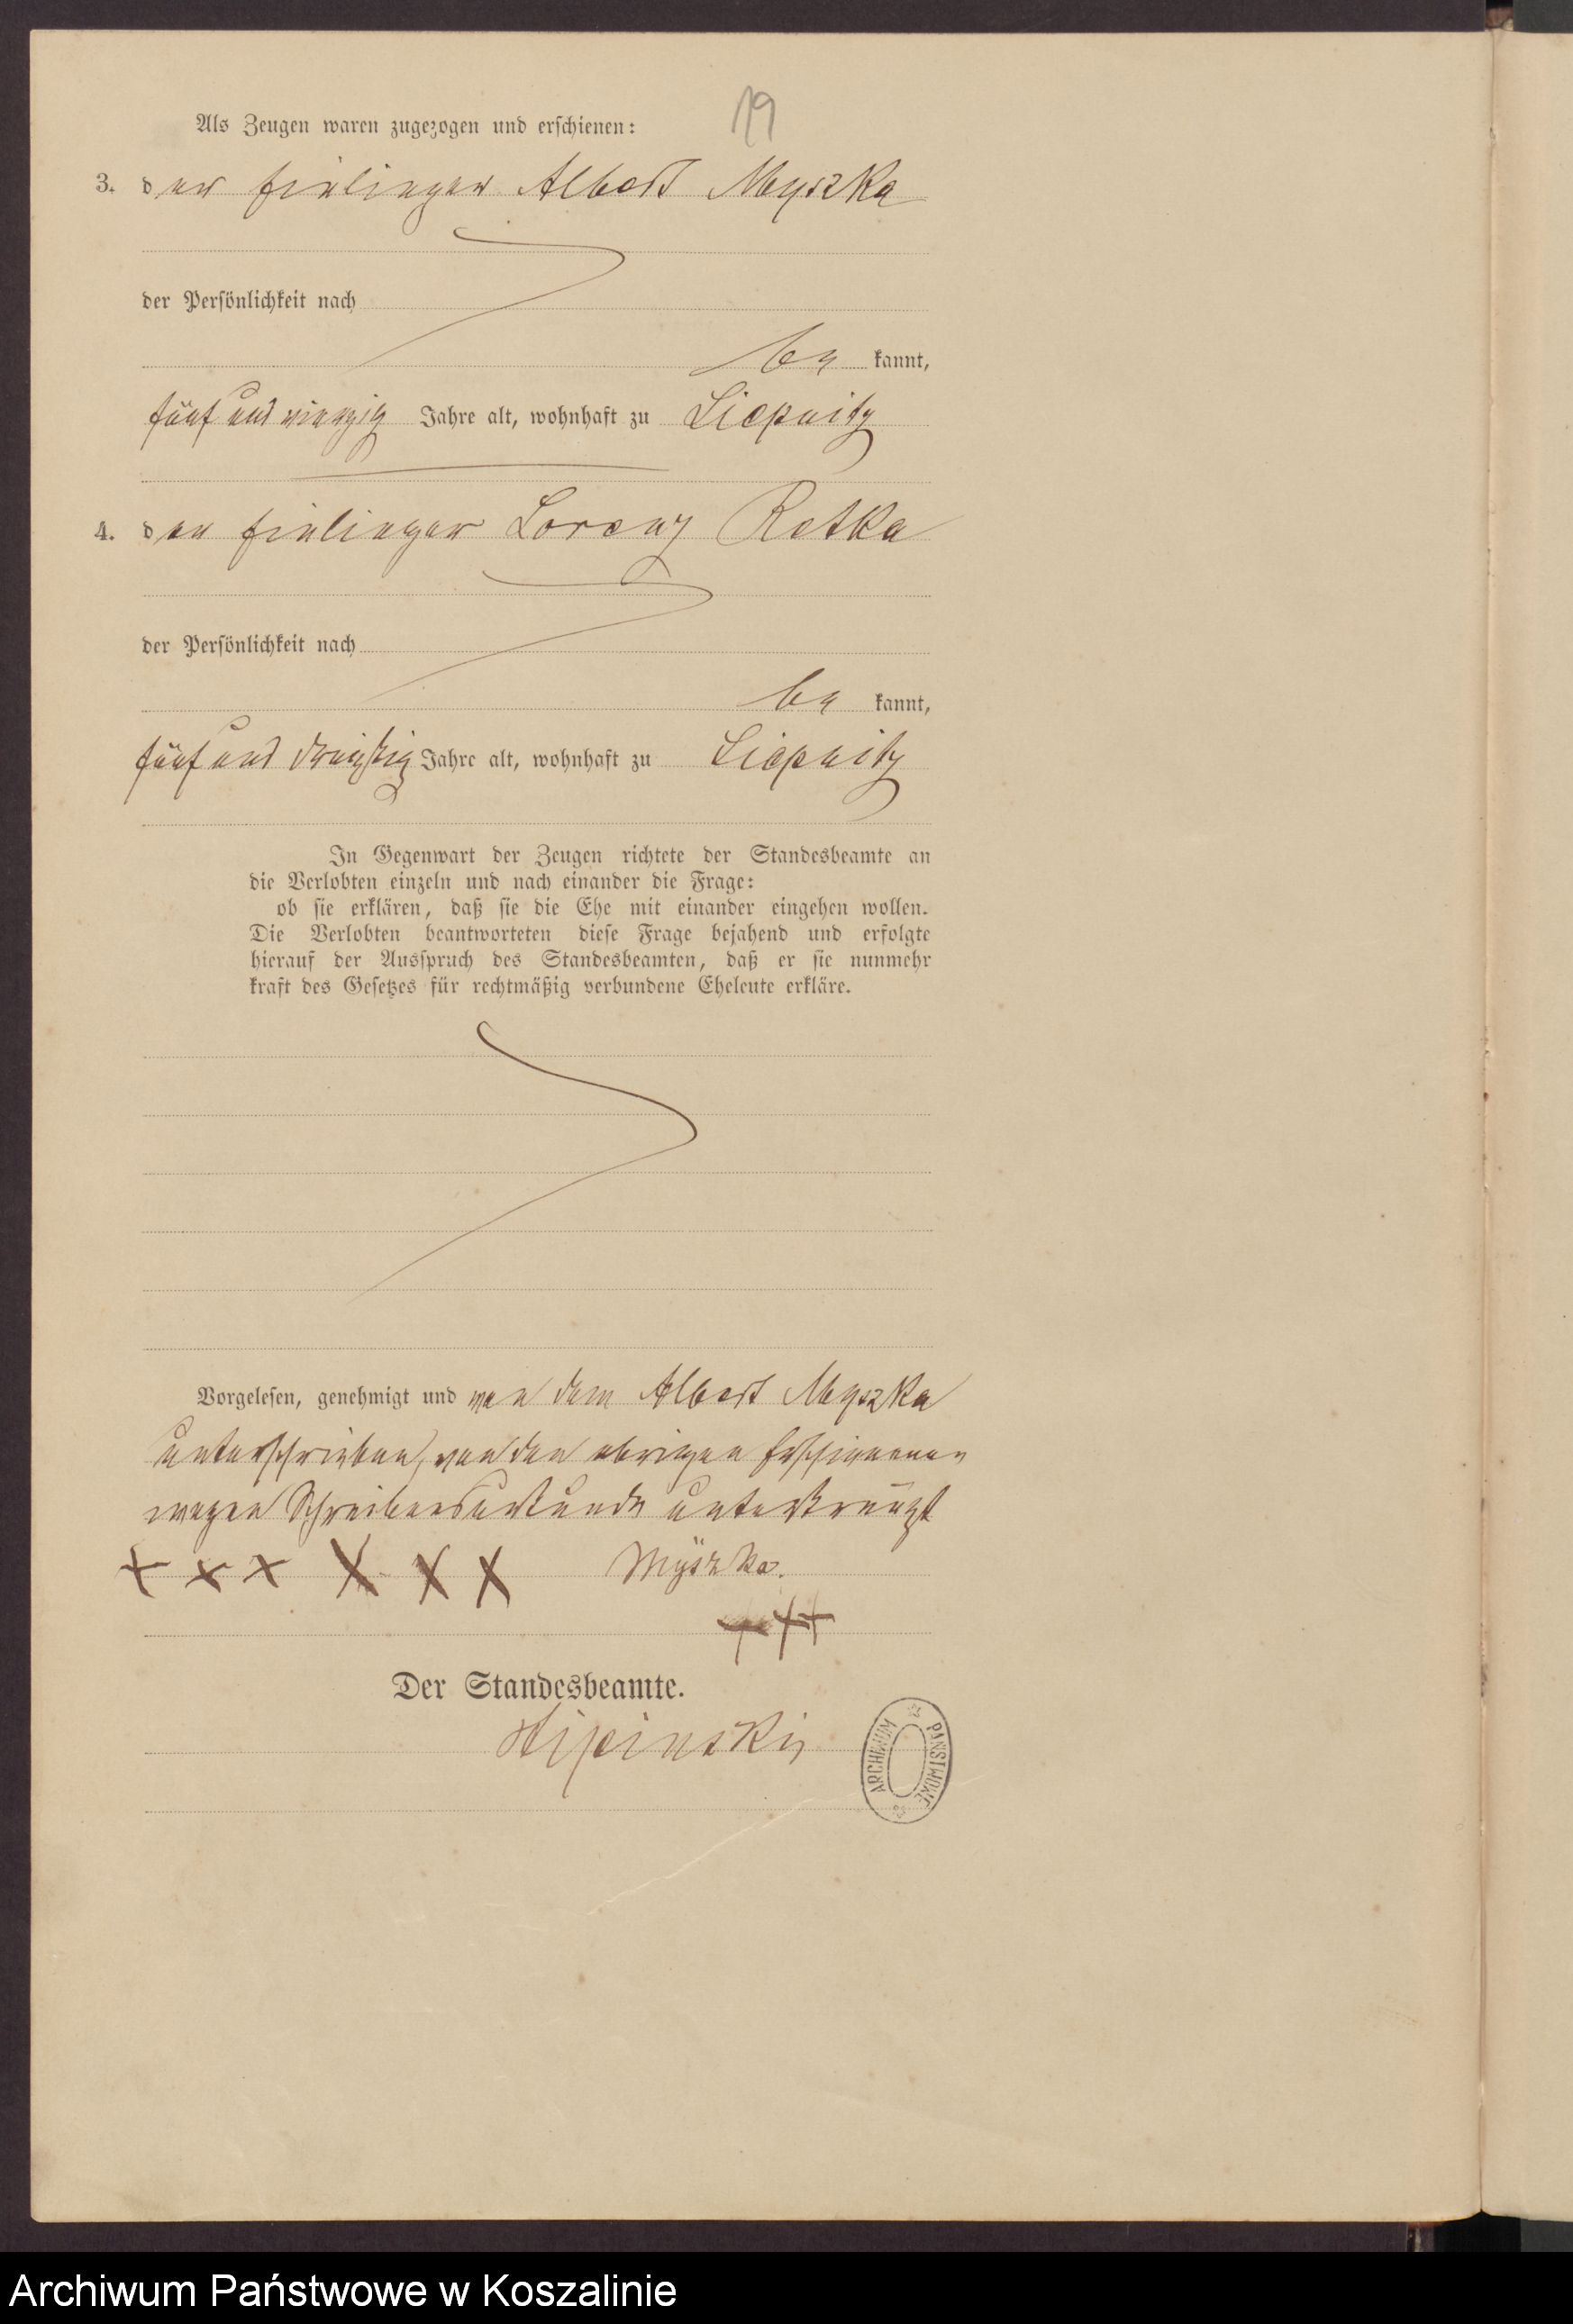 19
Als Zeugen waren zugezogen und erschienen:
3. der Einlieger Albert Myszka
der Persönlichkeit nach
be kannt,
fünf und vierzig Jahre alt, wohnhaft zu Liepnitz
4. der Einlieger Lorenz Rotka
der Persönlichkeit nach
be kannt,
fünf und dreißig Jahre alt, wohnhaft zu Liepnitz
In Gegenwart der Zeugen richtete der Standesbeamte an
die Verlobten einzeln und nach einander die Frage:
ob sie erklären, daß sie die Ehe mit einander eingehen wollen.
Die Verlobten beantworteten diese Frage bejahend und erfolgte
hierauf der Ausspruch des Standesbeamten, daß er sie nunmehr
kraft des Gesetzes für rechtmäßig verbundene Eheleute erkläre.
Vorgelesen, genehmigt und von dem Albert Myszka
unterschrieben, von den übrigen Erschienenen
wegen Schreibensunkunde unterkreuzt
+ + + X X X Myszka.
+++
Der Standesbeamte.
Lipinski
ARCHIWUM PAŃSTWOWE
Archiwum Państwowe w Koszalinie